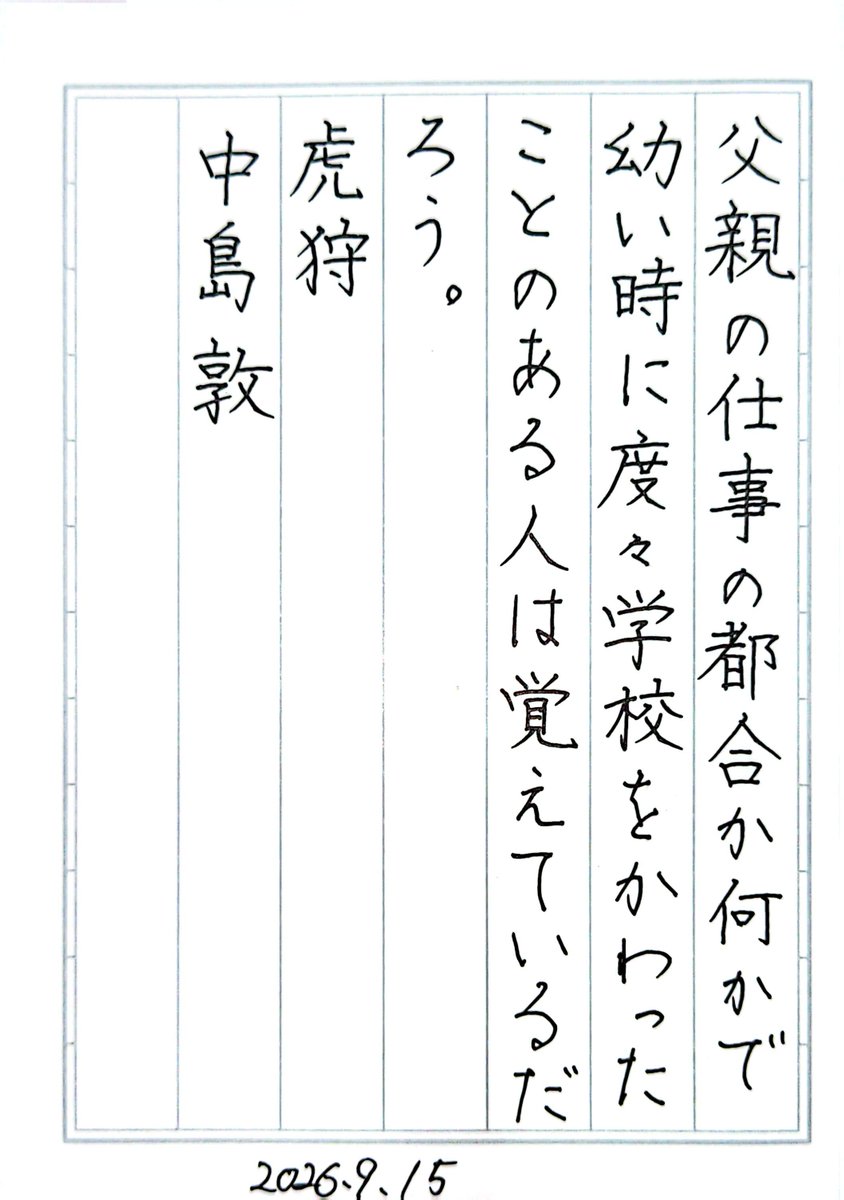 父親の仕事の都合か何かで
幼い時に度々学校をかわった
ことのある人は覚えているだ
ろう。
虎狩
中島敦
2026.9.15